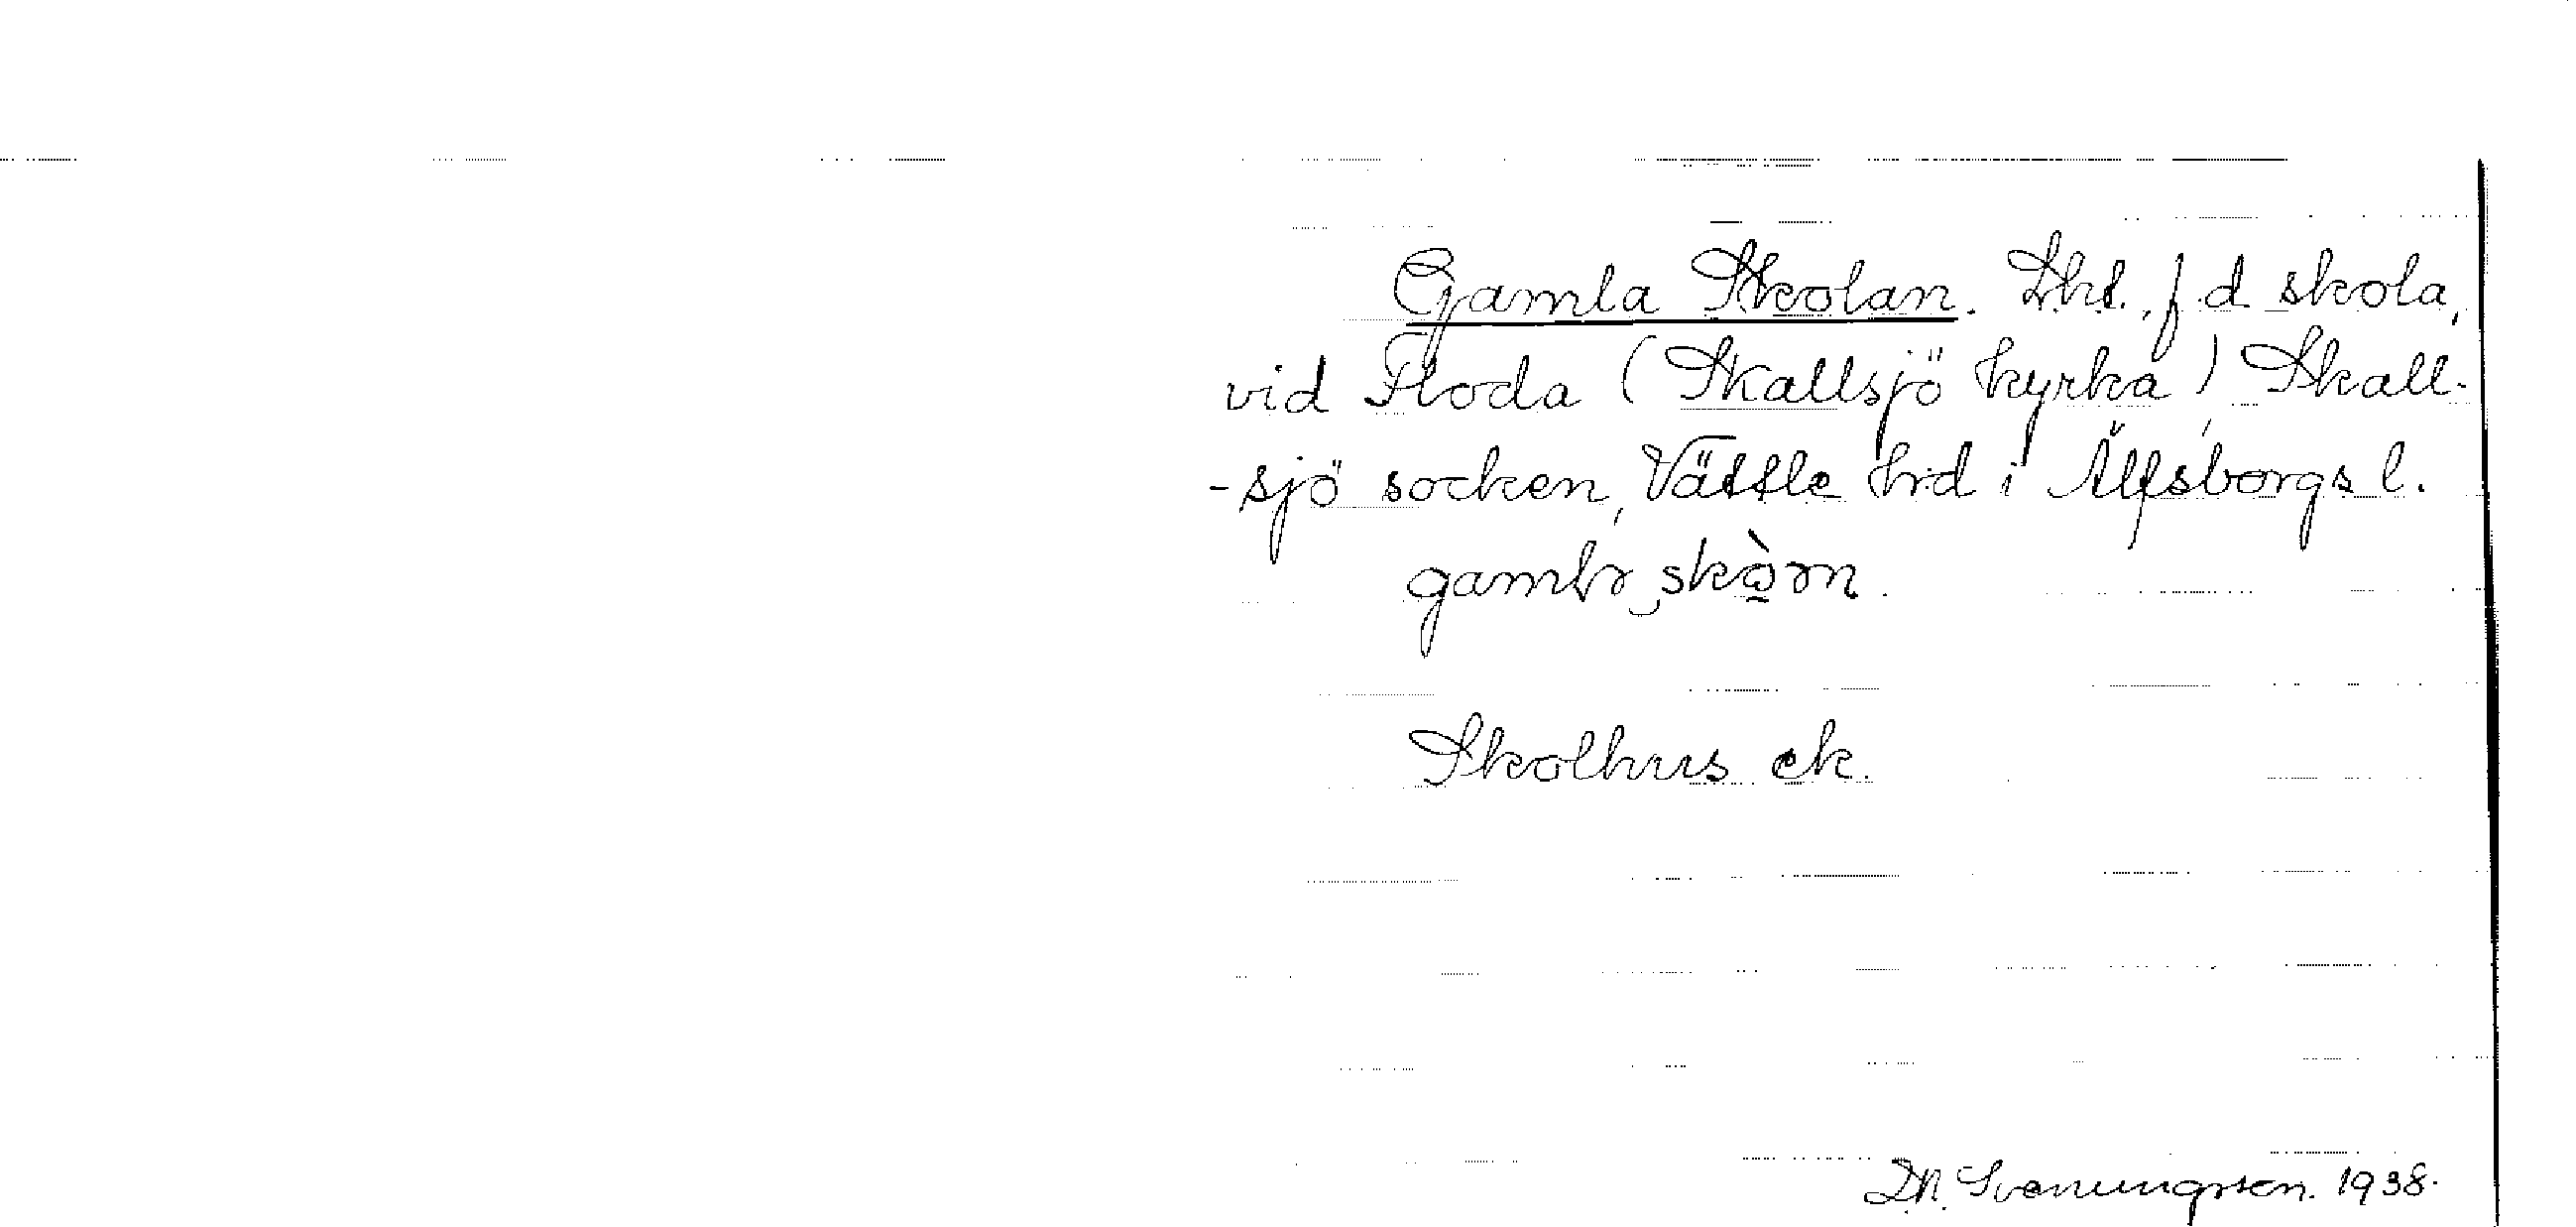 Gamla Skolan. Lht., f d skola,
vid Floda (Skallsjö kyrka) Skall-
-sjö socken, Vättle hrd i Älfsborgs l.
skò̲ɔn.
Skolhus ek.
Svenungsson. 1938.